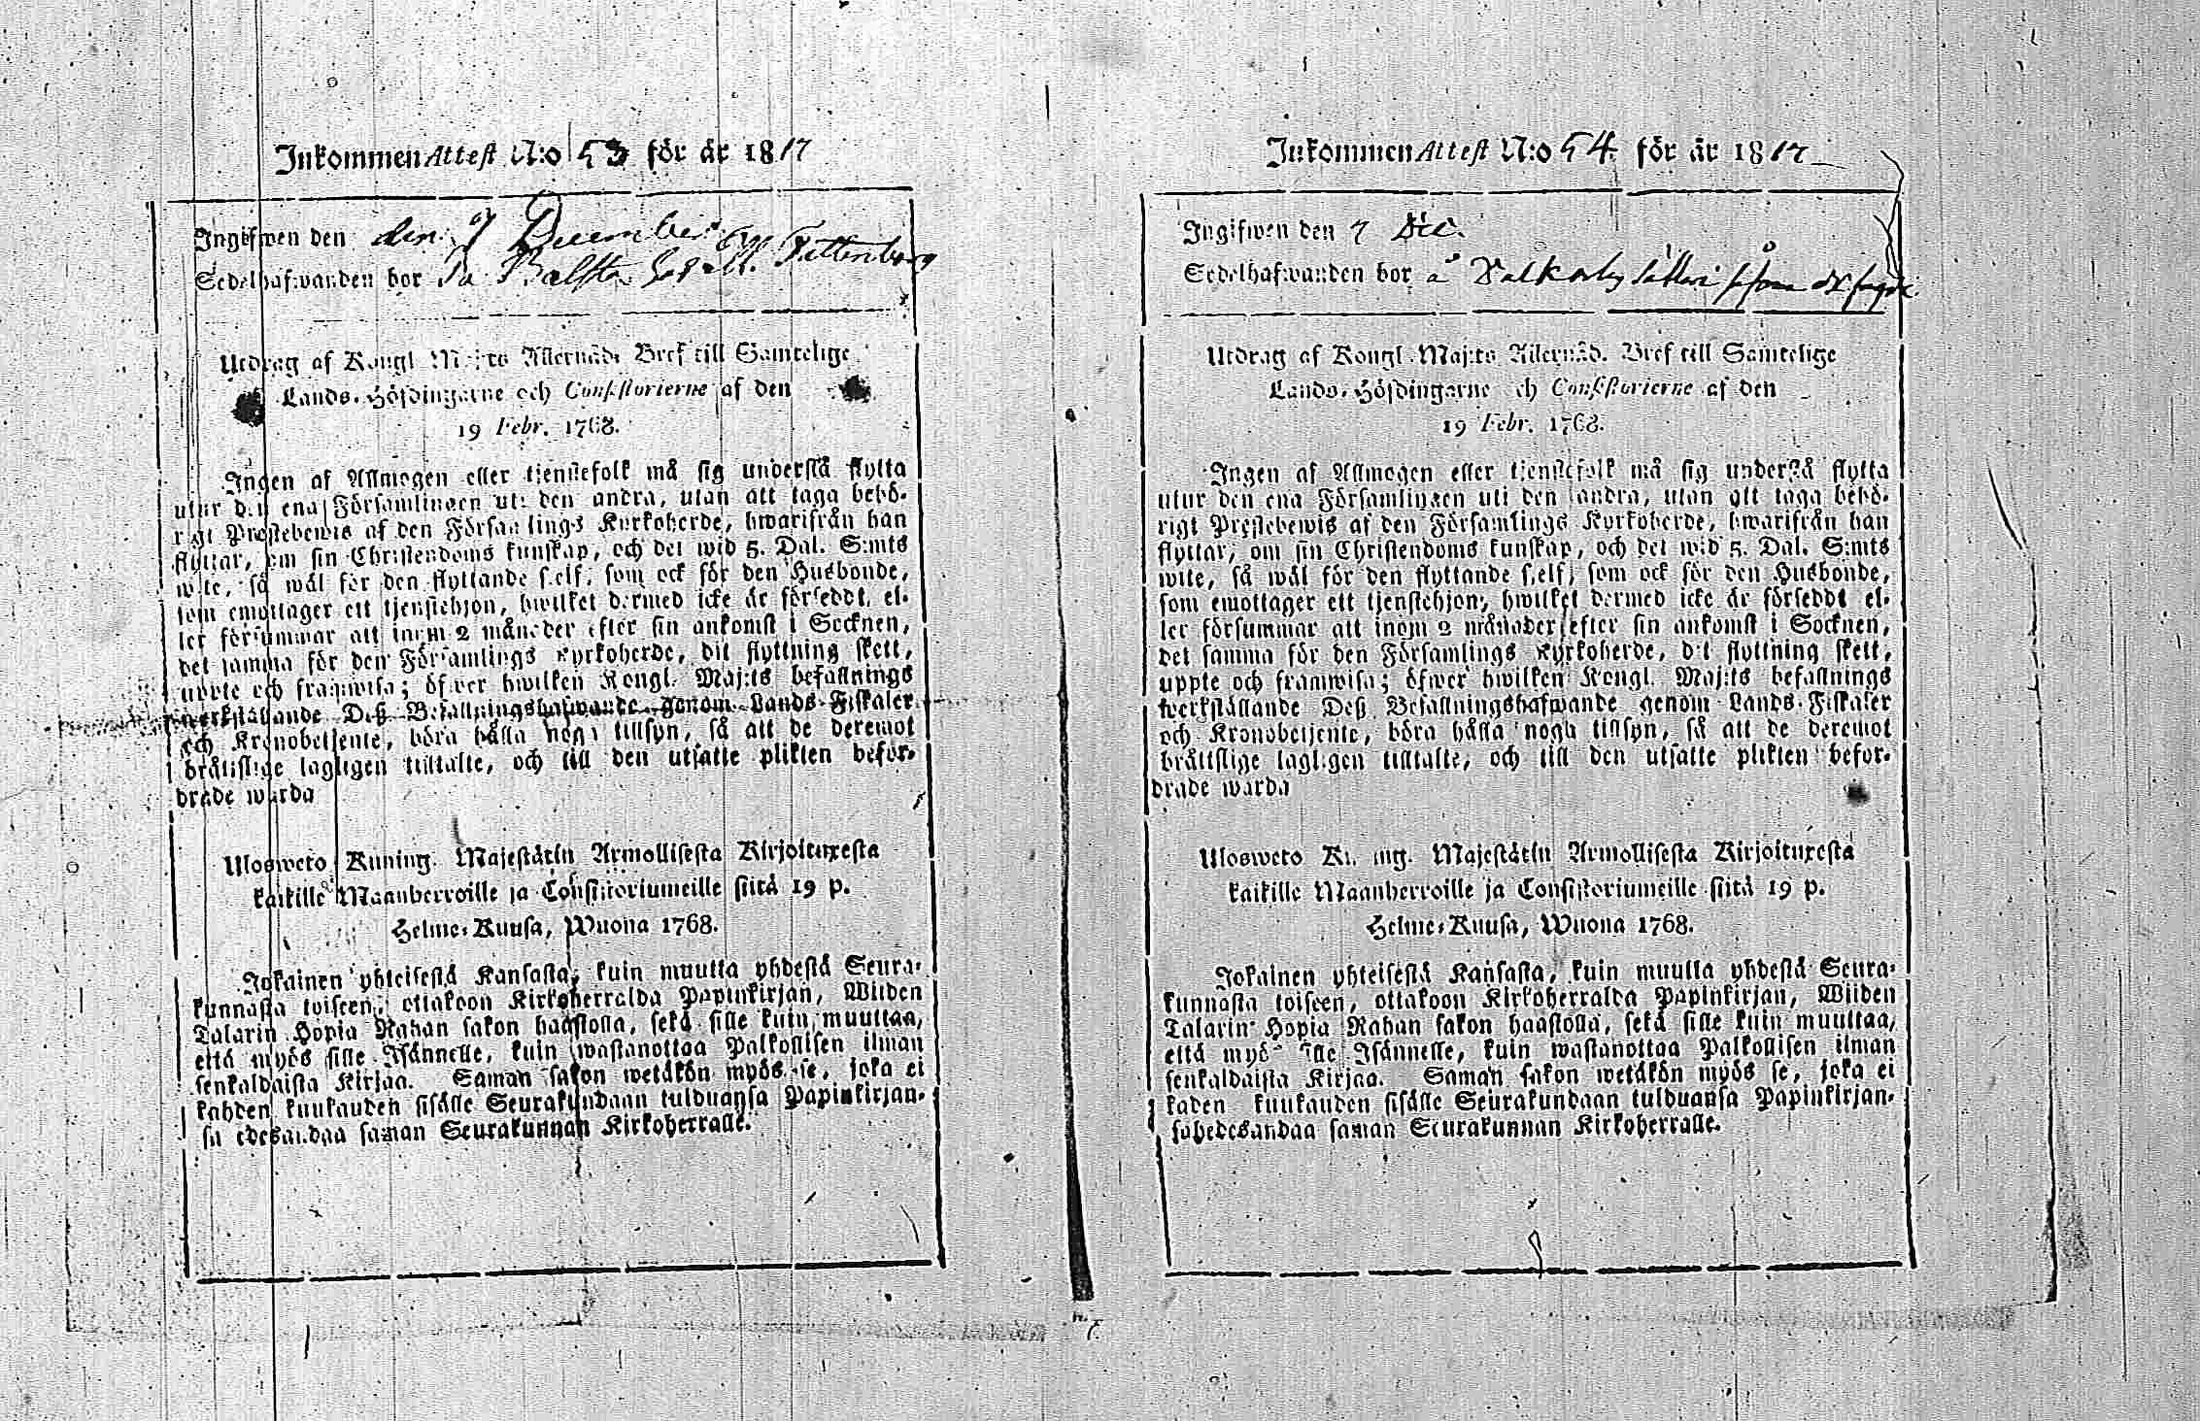 Inkommen Attest N:o 53 för år 1817
Ingifwen den den 7 December
Sedelhafwanden bor På Balsta hos M. Tettenborg
Utdrag af Kongl Maj:ts Allernåd. Bref till Samtelige
Lands-Höfdingarne och Consistorierne af den
19 Febr. 1768.
Ingen af Allmogen eller tjenstefolk må sig understå flytta
utur den ena Församlingen uti den andra, utan att taga behö-
rigt Prestebewis af den Församlings Kyrkoherde, hwarifrån han
flyttar, om sin Christendoms kunskap, och det wid 5. Dal. S:mts
wite, så wäl för den flyttande sielf, som ock för den Husbonde,
som emottager ett tjenstehjon, hwilket dermed icke är förseddt, el-
ler försummar att inom 2 månader efter sin ankomst i Socknen,
det samma för den Församlings Kyrkoherde, dit flyttning skett,
uppte och framwisa; öfwer hwilken Kongl. Maj:ts befallnings
werkställande Deß Befallningshafwande genom Lands-Fiskaler
och Kronobetjente, böra hålla noga tillsyn, så att de deremot
bråttslige lagligen tilltalte, och till den utsatte plikten befor-
drade warda
Ulosweto Kuning. Majestätin Armollisesta Kirjoituxesta
kaikille Maanherroille ja Consistoriumeille siitä 19 p.
Helme-Kuusa, Wuona 1768.
Jokainen yhteisestä Kansasta, kuin muutta yhdestä Seura-
kunnasta toiseen, ottakoon Kirkoherralda Papinkirjan, Wiiden
Talarin Hopia Rahan sakon haastolla, sekä sille kuin muuttaa,
että myös sille Isännelle, kuin wastanottaa Palkollisen ilman
senkaldaista Kirjaa. Saman sakon wetäkön myös se, joka ei
kahden kuukauden sisälle Seurakundaan tulduansa Papinkirjan-
sa edesandaa saman Seurakunnan Kirkoherralle.
Inkommen Attest N:o 54. för år 1817
Ingifwen den 7 Dec.
Sedelhafwanden bor å Valkarby
Utdrag af Kongl. Maj:ts Allernåd. Bref till Samtelige
Lands-Höfdingarne och Consistorierne af den
19 Febr. 1768.
Ingen af Allmogen eller tjenstefolk må sig understå flytta
utur den ena Församlingen uti den andra, utan att taga behö-
rigt Prestebewis af den Församlings Kyrkoherde, hwarifrån han
flyttar, om sin Christendoms kunskap, och det wid 5. Dal. S:mts
wite, så wäl för den flyttande sielf, som ock för den Husbonde,
som emottager ett tjenstehjon, hwilket dermed icke är förseddt el-
ler försummar att inom 2 månader efter sin ankomst i Socknen,
det samma för den Församlings Kyrkoherde, dit flyttning skett,
uppte och framwisa; öfwer hwilken Kongl. Maj:ts befallnings
werkställande Deß Befallningshafwande genom Lands-Fiskaler
och Kronobetjente, böra hålla noga tillsyn, så att de deremot
bråttslige lagligen tilltalte, och till den utsatte plikten befor-
drade warda
Ulosweto Kuning. Majestätin Armollisesta Kirjoituxesta
kaikille Maanherroille ja Consistoriumeille siitä 19 p.
Helme-Kuusa, Wuona 1768.
Jokainen yhteisestä Kansasta, kuin muutta yhdestä Seura-
kunnasta toiseen, ottakoon Kirkoherralda Papinkirjan, Wiiden
Talarin Hopia Rahan sakon haastolla, sekä sille kuin muuttaa,
että myös sille Isännelle, kuin wastanottaa Palkollisen ilman
senkaldaista Kirjaa. Saman sakon wetäkön myös se, joka ei
kaden kuukauden sisälle Seurakundaan tulduansa Papinkirjan-
sahedesandaa saman Seurakunnan Kirkoherralle.